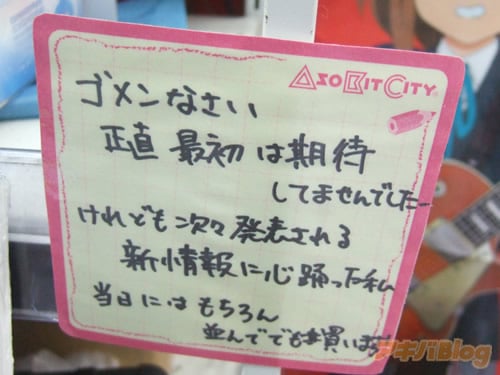 AsoBitCity
ゴメンなさい
正直 最初は期待
してませんでしたー
けれども次々発表される
新情報に心踊った私
当日にはもちろん
並んででも買います
アキバBlog